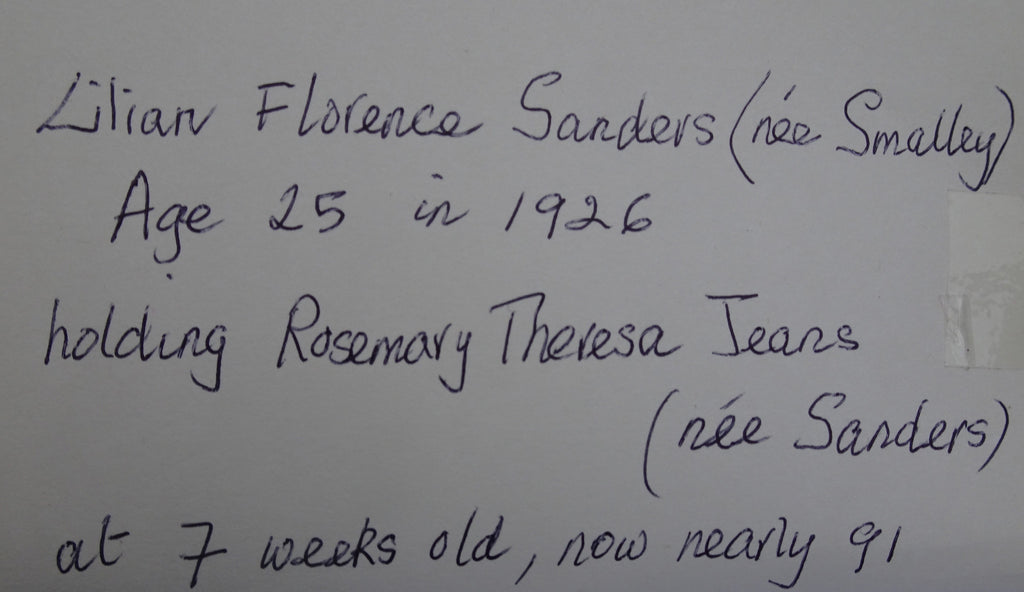 Lilian Florence Sanders (née Smalley)
Age 25 in 1926
holding Rosemary Theresa Jeans
(née Sanders)
at 7 weeks old, now nearly 91